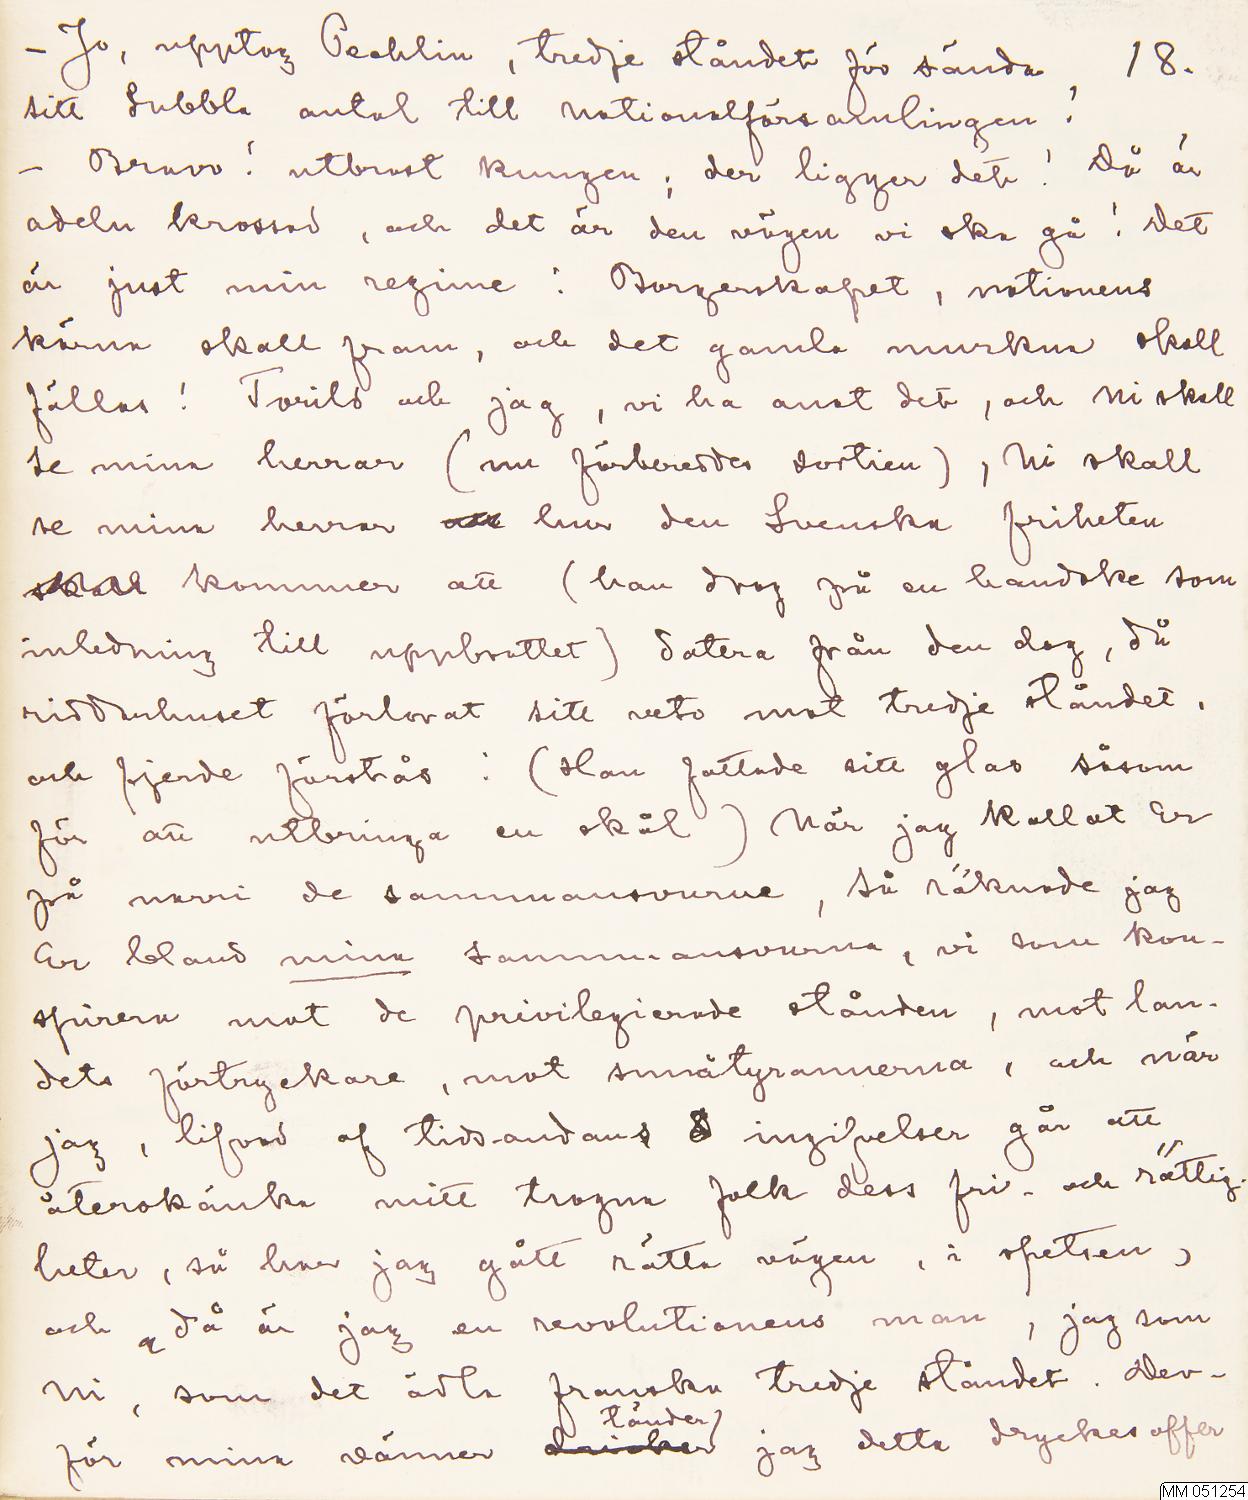 – Jo, upptog Pechlin, tredje ståndet får sända 18.
sitt dubbla antal till nationalförsamlingen!
– Bravo! utbrast kungen, der ligger det! Då är
adeln krossad, och det är den vägen vi ska gå! Det
är just min regime! Borgerskapet, nationens
kärna skall fram, och det gamla murkna skall
fällas! Torild och jag, vi ha anat det, och Ni skall
se mina herrar (nu förbereddes sortien), Ni skall
se mina herrar att hur den Svenska friheten
skall kommer att (han drog på en handske som
inledning till uppbrottet) datera från den dag, då
riddarhuset förlorat sitt veto mot tredje ståndet,
och fjerde förstås! (Han fattade sitt glas såsom
för att utbringa en skål) När jag kallat Er
på narri de sammansvurne, så räknade jag
Er bland mina sammansvurna, vi som kon-
spirera mot de privilegierade stånden, mot lan-
dets förtryckare, mot småtyrannerna, och när
jag, lifvad af tids-andans ingifvelser går att
återskänka mitt trogna folk dess fri- och rättig-
heter, så har jag gått rätta vägen, i spetsen,
och då är jag en revolutionens man, jag som
Ni, som det ädla franska tredje ståndet. Der-
tänder
för mina vänner dricker jag detta dryckesoffer
MM 051254